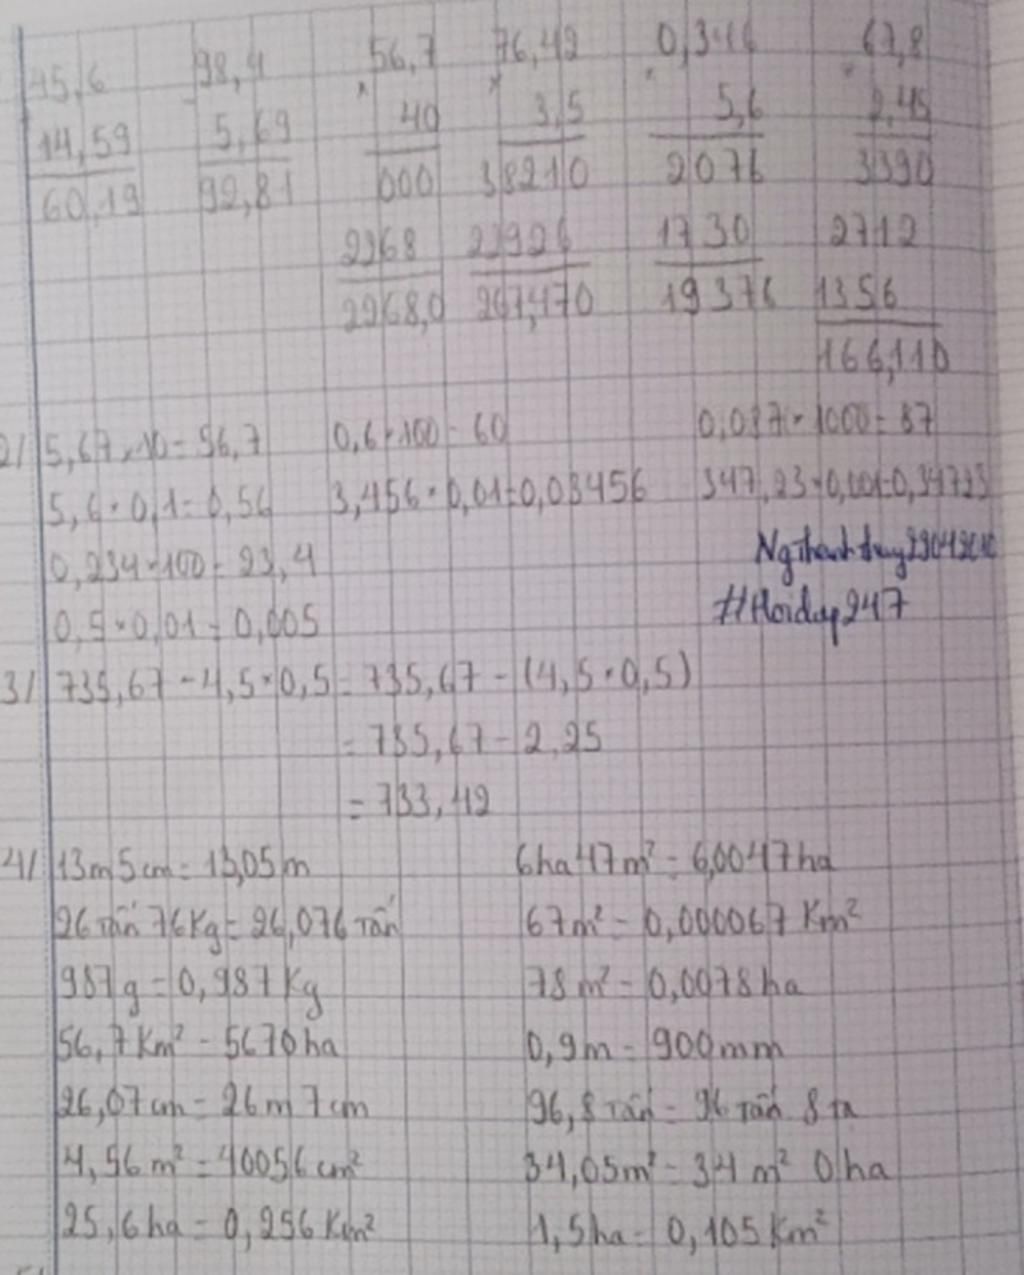 45,6 98,4 56,7 76,42 0,346 67,8
14,59 5,69 × 40 × 3,5 × 5,6 × 2,45
60,19 92,81 000 38210 2076 3390
2268 22926 1730 2712
2268,0 267,470 19376 1356
166,110
2/ 5,67 × 10 = 56,7 0,6 × 100 = 60 0,087 × 1000 = 87
5,6 × 0,1 = 0,56 3,456 × 0,01 = 0,03456 347,23 × 0,001 = 0,34723
0,234 × 100 = 23,4
0,5 × 0,01 = 0,005
#Hoidap247
3/ 735,67 - 4,5 × 0,5 = 735,67 - (4,5 × 0,5)
= 735,67 - 2,25
= 733,42
4/ 13m 5cm = 13,05 m 6ha 47m² = 6,0047 ha
26 tấn 76 Kg = 26,076 tấn 67m² = 0,000067 Km²
987g = 0,987 Kg 78 m² = 0,0078 ha
56,7 Km² = 5670 ha 0,9m = 900mm
26,07 cm = 26m 7cm 96,8 tấn = 96 tấn 8 tạ
4,56 m² = 40056 cm² 34,05m² = 34 m² 0 ha
25,6 ha = 0,256 Km² 1,5 ha = 0,105 Km²